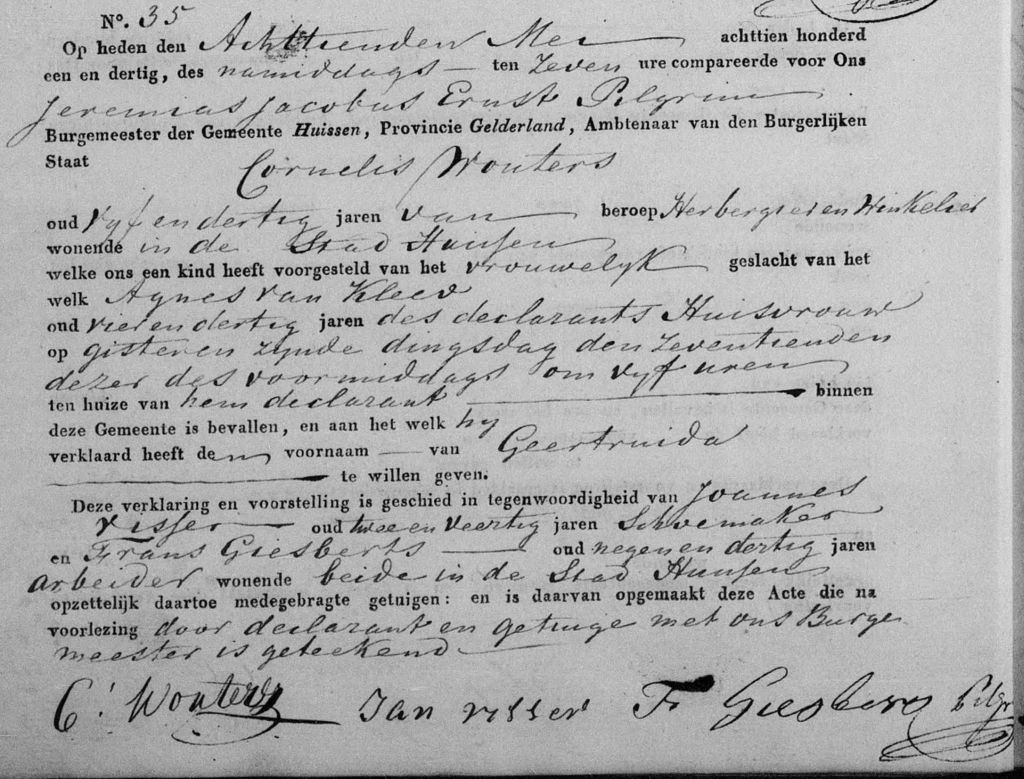 N°. 35
Op heden den Achttienden Mei achttien honderd
een en dertig, des namiddags ten Zeven ure compareerde voor Ons
Jeremias Jacobus Ernst Pelgrim
Burgemeester der Gemeente Huissen, Provincie Gelderland, Ambtenaar van den Burgerlijken
Staat
Cornelis Wouters
oud Vyf en dertig jaren van beroep Herbergier en Winkelier
wonende in de Stad Huissen
welke ons een kind heeft voorgesteld van het vrouwelyk geslacht van het
welk Agnes van Kleev
oud vier en dertig jaren des declarants Huisvrouw
op gisteren zynde dingsdag den zeventienden
dezer des voormiddags om vyf uren
ten huize van hem declarant binnen
deze Gemeente is bevallen, en aan het welk hy
verklaard heeft den voornaam van Geertruida
te willen geven.
Deze verklaring en voorstelling is geschied in tegenwoordigheid van Joannes
Visser oud twee en Veertig jaren Schoemaker
en Frans Giesberts oud negen en dertig jaren
arbeider wonende beide in de Stad Huissen
opzettelijk daartoe medegebragte getuigen: en is daarvan opgemaakt deze Acte die na
voorlezing door declarant en getuige met ons Burge
meester is geteekend
C. Wouters Jan visser Fr Giesbers Pelgr